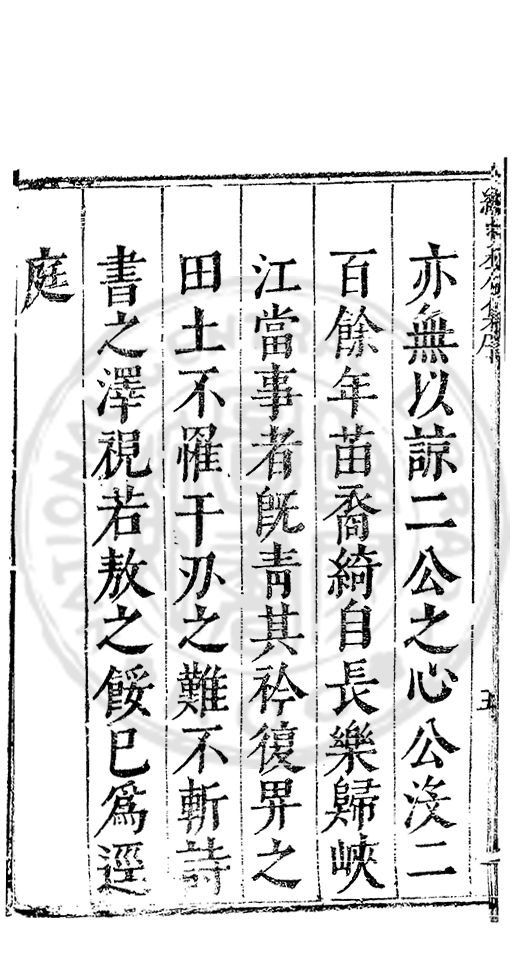 亦無以諒二公之心公沒二
百餘年苗裔綺自長樂歸峽
江當事者既青其衿復畀之
田土不罹干刃之難不斬詩
書之澤視若敖之餒已為逕
庭
五